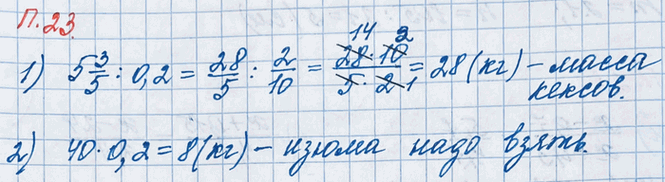 П.23.
1) 5 3/5 : 0,2 = 28/5 : 2/10 = 28·10/5·2 (14, 2, 1) = 28 (кг) – масса
кексов.
2) 40 · 0,2 = 8 (кг) – изюма надо взять.